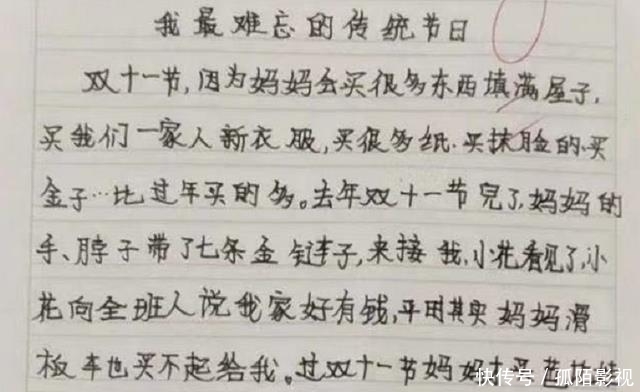 我最难忘的传统节日
双十一节,因为妈妈会买很多东西填满屋子,
买我们一家人新衣服,买很多纸.买抹脸的.买
金子…比过年买的多。去年双十一节完了,妈妈的
手、脖子带了七条金链子,来接我,小花看见了,小
花向全班人说我家好有钱,平时其实妈妈滑
板车也买不起给我。过双十一节妈妈
快传号/孤陌影视